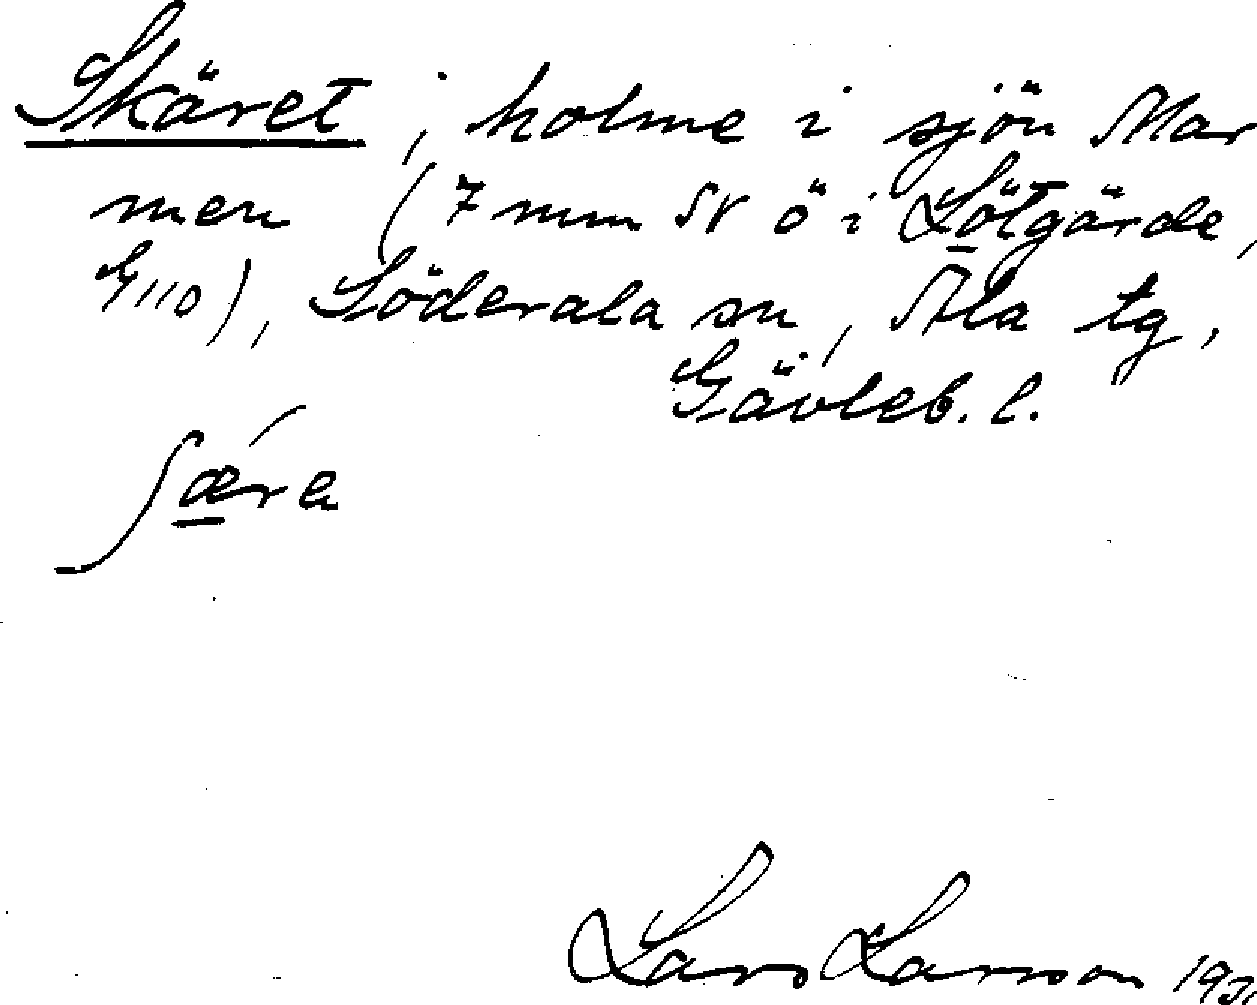 Skäret, holme i sjön Mar
men (7 mm SV ö i Lötgärde,
G110), Söderala sn, Ala tg,
Gävleb. l.
ʃæ´ra
Lars Larsson